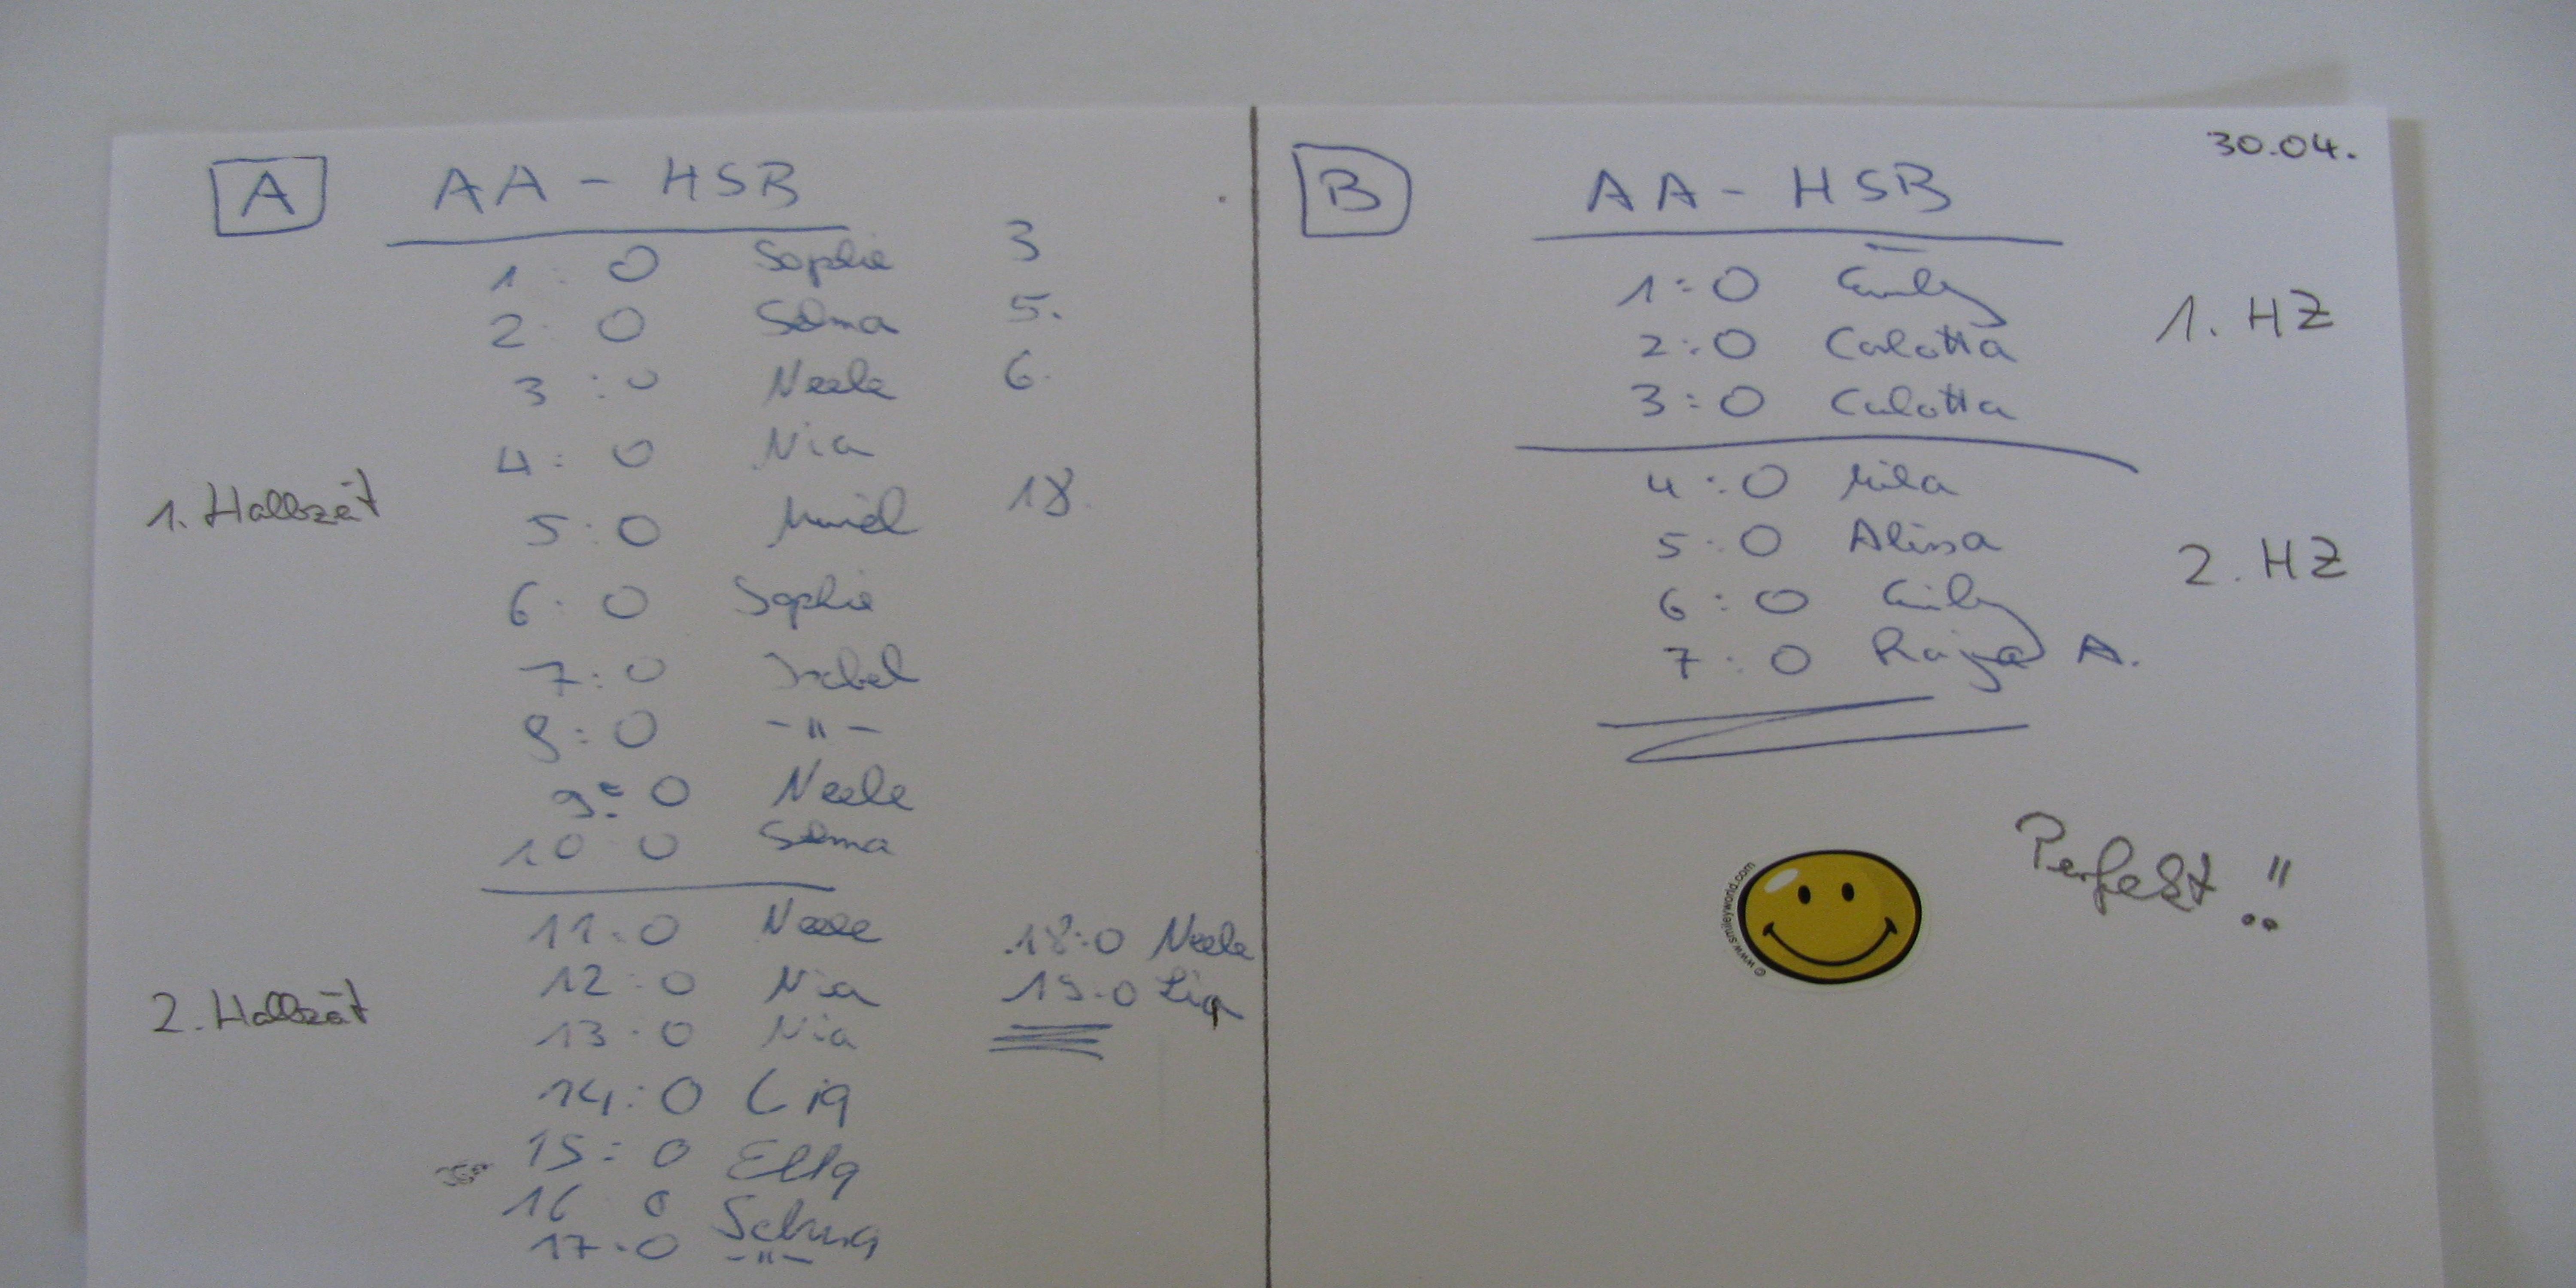 A AA - HSB
1 : 0 Sophie 3
2 : 0 Selma 5.
3 : 0 Neele 6.
4 : 0 Nia
1. Halbzeit
5 : 0 Muriel 18.
6 : 0 Sophie
7 : 0 Isabel
8 : 0 - " -
9 : 0 Neele
10 0 Selma
11 : 0 Neele
12 : 0 Nia
2. Halbzeit
13 : 0 Nia
14 : 0 Lia
15 : 0 Ella
16 0 Selma
17 : 0 - " -
18:0 Neele
19:0 Lia
30.04.
B AA - HSB
1 : 0 Emily
1. HZ
2 : 0 Carlotta
3 : 0 Carlotta
4 : 0 Mila
5 : 0 Alissa
2. HZ
6 : 0 Emily
7 : 0 A.
Perfekt !!
© www.smileyworld.com